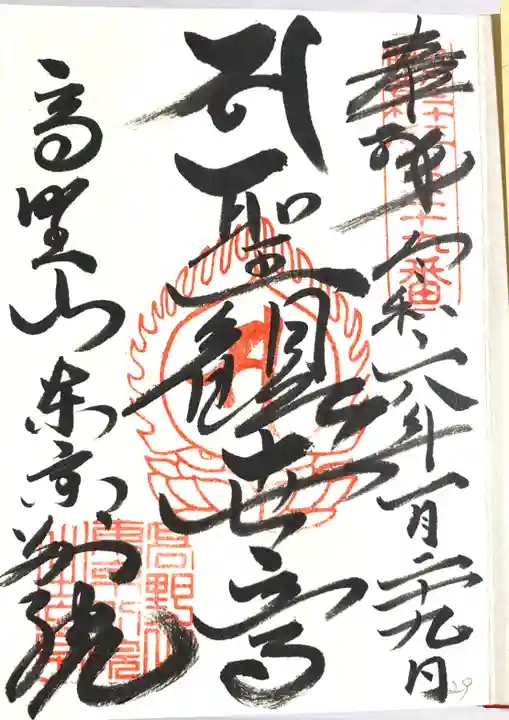 奉拝 令和六年一月二十九日
聖観世音
高野山東京別院
29